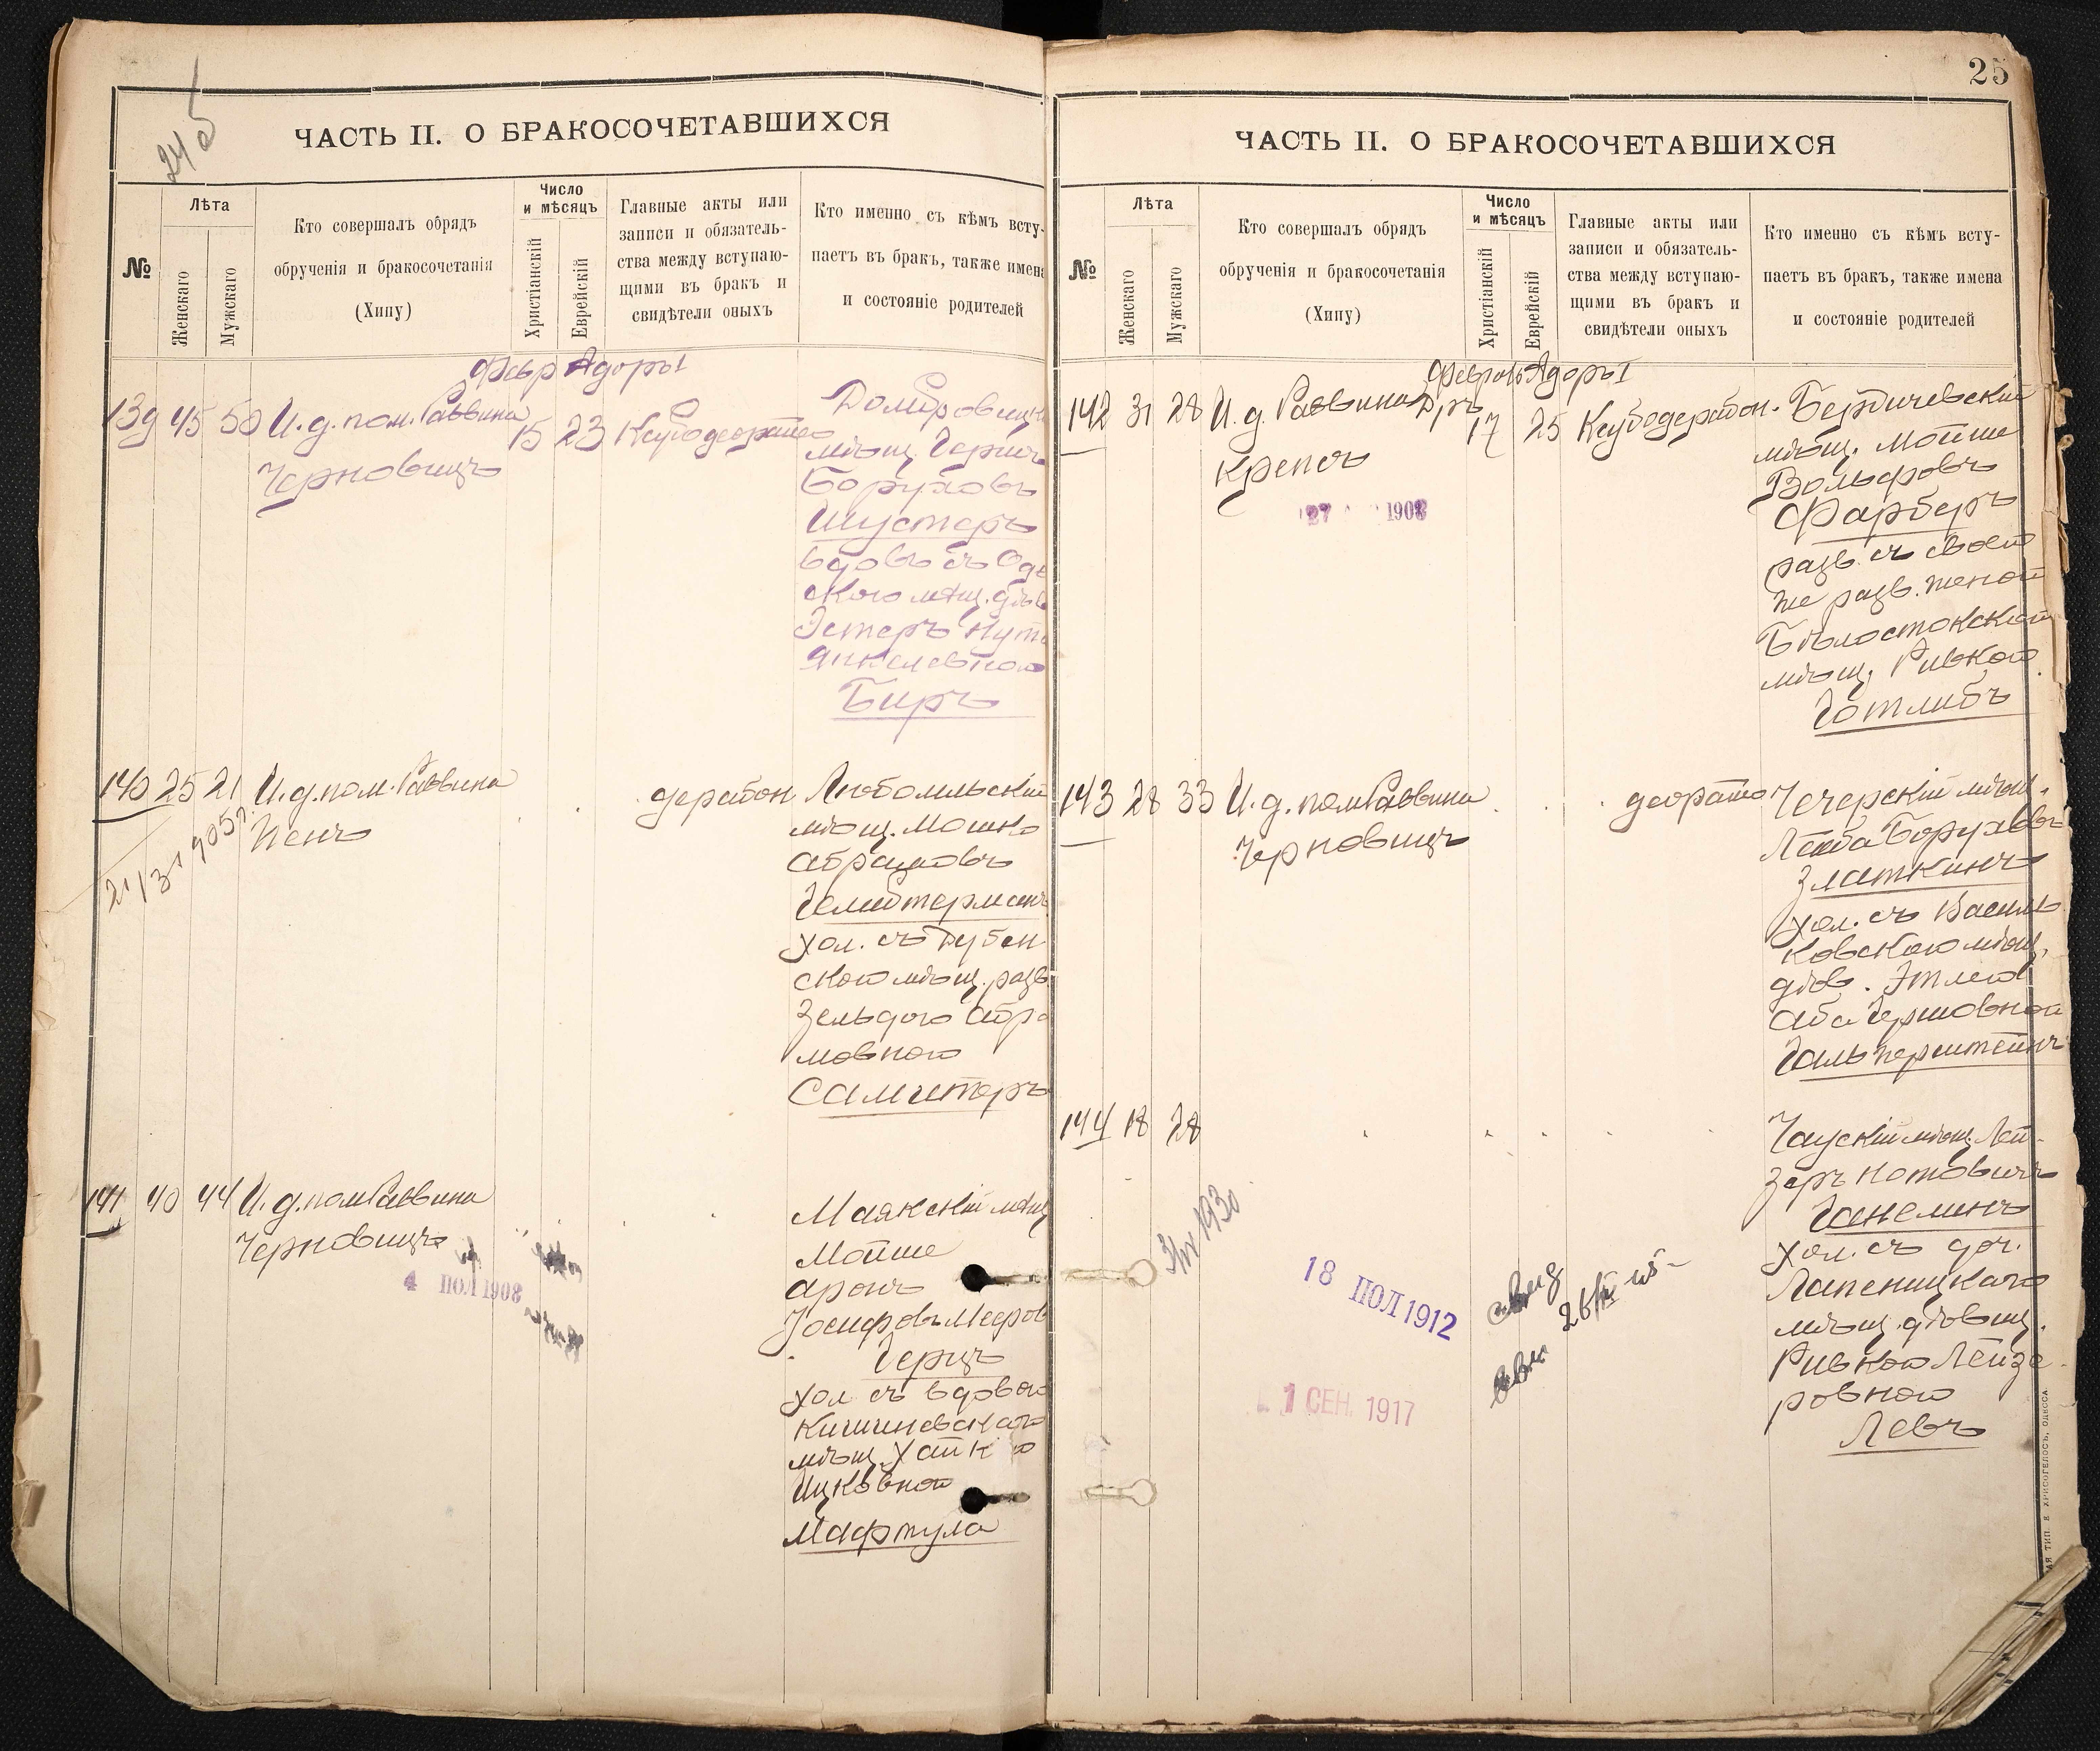 24 об
ЧАСТЬ II. О БРАКОСОЧЕТАВШИХСЯ
№
Лѣта
Женскаго
Мужскаго
Кто совершалъ обрядъ
обрученія и бракосочетанія
(Хипу)
Число
и мѣсяцъ
Христіанскій
Еврейскій
Главные акты или
записи и обязатель-
ства между вступаю-
щими въ бракъ и
свидѣтели оныхъ
Кто именно съ кѣмъ всту-
паетъ въ бракъ, также имена
и состояніе родителей
Февр Адоръ I
139 45 50 И. д. пом. Раввина
Черновицъ
15 23
мѣщ. Гершъ
Боруховъ
Шустеръ
вдовъ съ Оде
скою мѣщ. дѣв
Эстеръ
Янкелевною
Биръ
140 25 21 И. д. пом. Раввина
Пенъ
Любомльскій
мѣщ. Мошко
Абрамовъ
Гелибтерманъ
хол. съ Дубен
скою мѣщ. разв
Зельдою Абра
мовною
Самитеръ
141 40 44 И. д. пом Раввина
Черновицъ
4 ПОЛ 1908
Маякскій мѣщ
Мойше
Аронъ
Іосифовъ Мееров
Герцъ
хол съ вдовою
Кишиневскаго
мѣщ. Хайк ю
Ицковной
Марпула
25
ЧАСТЬ II. О БРАКОСОЧЕТАВШИХСЯ
№
Лѣта
Женскаго
Мужскаго
Кто совершалъ обрядъ
обрученія и бракосочетанія
(Хипу)
Число
и мѣсяцъ
Христіанскій
Еврейскій
Главные акты или
записи и обязатель-
ства между вступаю-
щими въ бракъ и
свидѣтели оныхъ
Кто именно съ кѣмъ всту-
паетъ въ бракъ, также имена
и состояніе родителей
Февраль Адоръ I
142 31 28 И. д. Раввина Дръ
Крепсъ
17 25
27 1908
Бердичевскій
мѣщ. Мойше
Вольфовъ
Фарберъ
разв. съ своей
же разв. женой
Бѣлостокской
мѣщ. Ривкой
Готлибъ
143 28 33 И. д. пом Раввина
Черновицъ
Чечерскій мѣщ.
Лейба Боруховъ
Златкинъ
хол. съ Василь
ковскою мѣщ.
дѣв. Этлею
Аба Гершовной
Гальперштейнъ
144 18 28
18 ПОЛ 1912
1 СЕН. 1917
Чаускій мѣщ. Лей-
зеръ Нотовичъ
Ганелинъ
хол. съ доч.
Лапеницкаго
мѣщ. дѣвиц.
Ривкою Лейзе-
ровною
Левъ